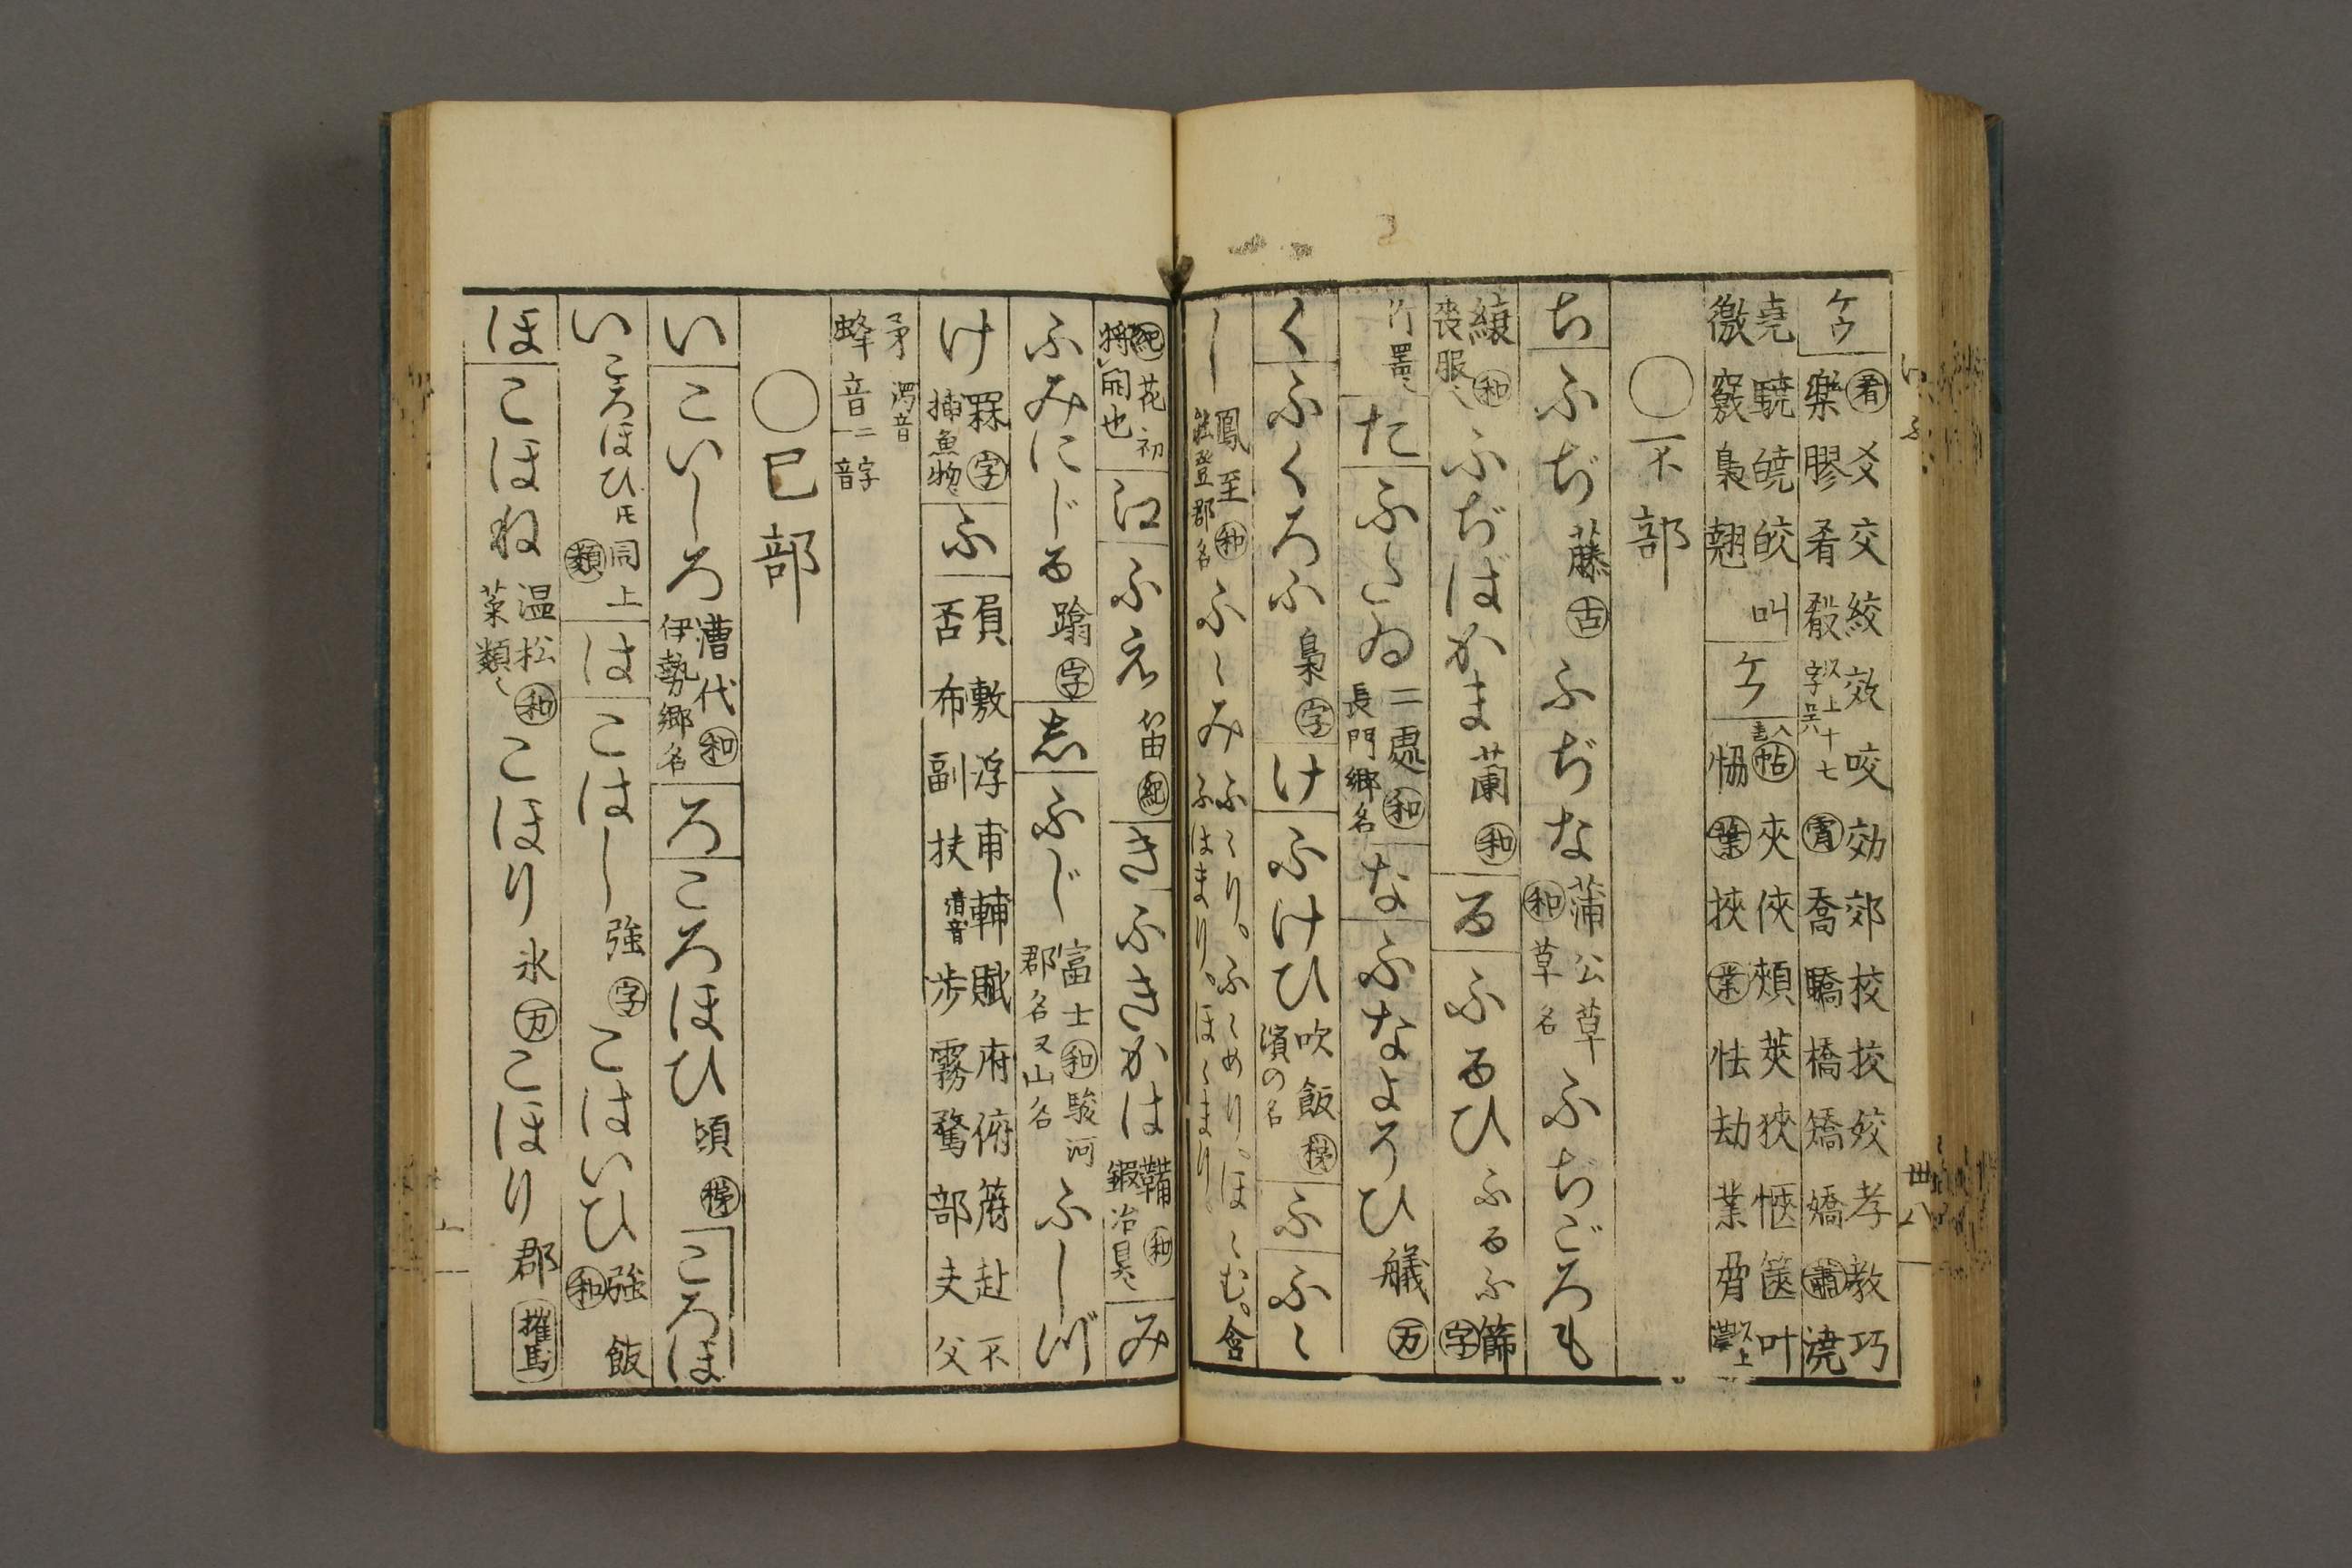 ケウ 肴 爻交絞效咬効郊校挍姣孝教巧
樂膠肴殽 又上字 十七 宵 喬驕橋矯嬌 蕭 澆
堯驍皢皎叫 ケフ 入 帖 夾俠頰莢狹愜篋叶
徼竅梟翹 恊 葉 挾 業 怯劫業脅 又上
○不部
ち ふぢ 藤 古 ふぢな 蒲公草 和 草名 ふぢごろも
縗 和 喪服 ふぢばかま 蘭 和 る ふるひ ふるふ 篩 字
竹器 た ふたゐ 二處 和 長門郷名 な ふなよそひ 艤 万
く ふくろふ 梟 字 け ふけひ 吹飯 濱の名 ふ ふゝ
し 鳳至 和 能登郡名 ふゝみ ふゝり。ふゝめり。ほゝむ。含
ふふはまり、ほゝまり
紀 花初将開也 江 ふえ 笛 紀 き ふきかは 鞴 和 鍜冶具 み
ふみにじる 蹹 字 志 ふじ 富士 和 駿河郡名又山名 ふしづ
け 罧 字 捕魚物 ふ 負敷浮甫輔賦府俯符赴不
否布副扶 清音 步霧鶩部夫父
矛 濁音
蜂 音 二字音
○己部
い こいしろ 漕代 和 伊勢郷名 ろ ころほひ 頃 ころほ
い ころほひ 氏 同上 類 は こはし 強 字 こはいひ 強飯 和
ほ こほね 温菘 和 菜類 こほり 氷 万 こほり 郡 催馬
いふ
卅八
上